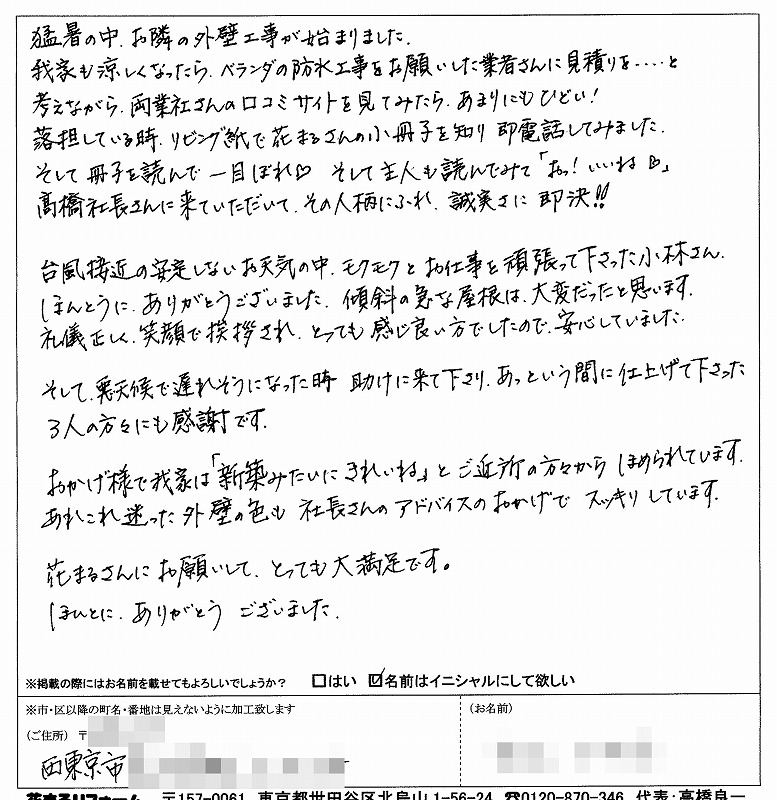 猛暑の中、お隣の外壁工事が始まりました。
我家も涼しくなったら、ベランダの防水工事をお願いした業者さんに見積りを……と
考えながら、両業社さんの口コミサイトを見てみたら、あまりにもひどい!
落担している時、リビング紙で花まるさんの小冊子を知り 即電話してみました。
そして冊子を読んで 一目ぼれ♡ そして主人も読んでみて「おっ!いいね♡」
高橋社長さんに来ていただいて、その人柄にふれ、誠実さに 即決!!
台風接近の安定しないお天気の中、モクモクとお仕事を頑張って下さった小林さん。
ほんとうに、ありがとうございました。傾斜の急な屋根は、大変だったと思います。
礼儀正しく、笑顔で挨拶され、とっても感じ良い方でしたので、安心していました。
そして、悪天候で遅れそうになった時 助けに来て下さり、あっという間に仕上げて下さった
3人の方々にも感謝です。
おかげ様で我家は「新築みたいにきれいね」とご近所の方々からほめられています。
あれこれ迷った外壁の色も 社長さんのアドバイスのおかげで スッキリしています。
花まるさんにお願いして、とっても大満足です。
ほんとに、ありがとう ございました。
※掲載の際にはお名前を載せてもよろしいでしょうか? □はい ☑名前はイニシャルにして欲しい
※市・区以降の町名・番地は見えないように加工致します (お名前)
(ご住所) 〒
西東京市
花まるリフォーム 〒157-0061 東京都世田谷区北烏山 1-56-24 ☎0120-870-346 代表:高橋良一